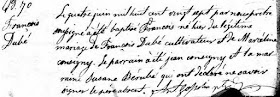 François
Dubé
Le quatre juin mil huit cent vingt sept par nous prêtre
soussigné a été baptisé François né hier du légitime
mariage de François Dubé cultivateur et de Marcelline
consigny. Le parrain a été jean consigny et la mar
raine Susane Dérubé qui ont déclaré ne savoir
signer le